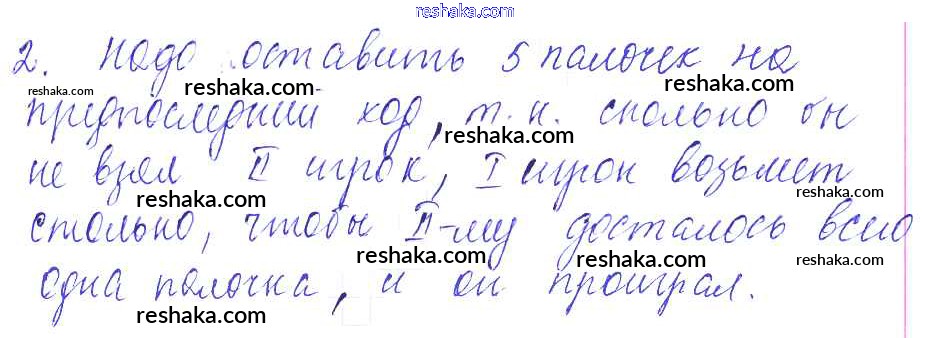 reshaka.com
2. Надо оставить 5 палочек на
reshaka.com reshaka.com reshaka.com
предпоследний ход, т.к. сколько бы
reshaka.com reshaka.com
не взял II игрок, I игрок возьмет
reshaka.com reshaka.com
столько, чтобы II-му досталось всего
reshaka.com reshaka.com
одна палочка, и он проиграл.
reshaka.com reshaka.com